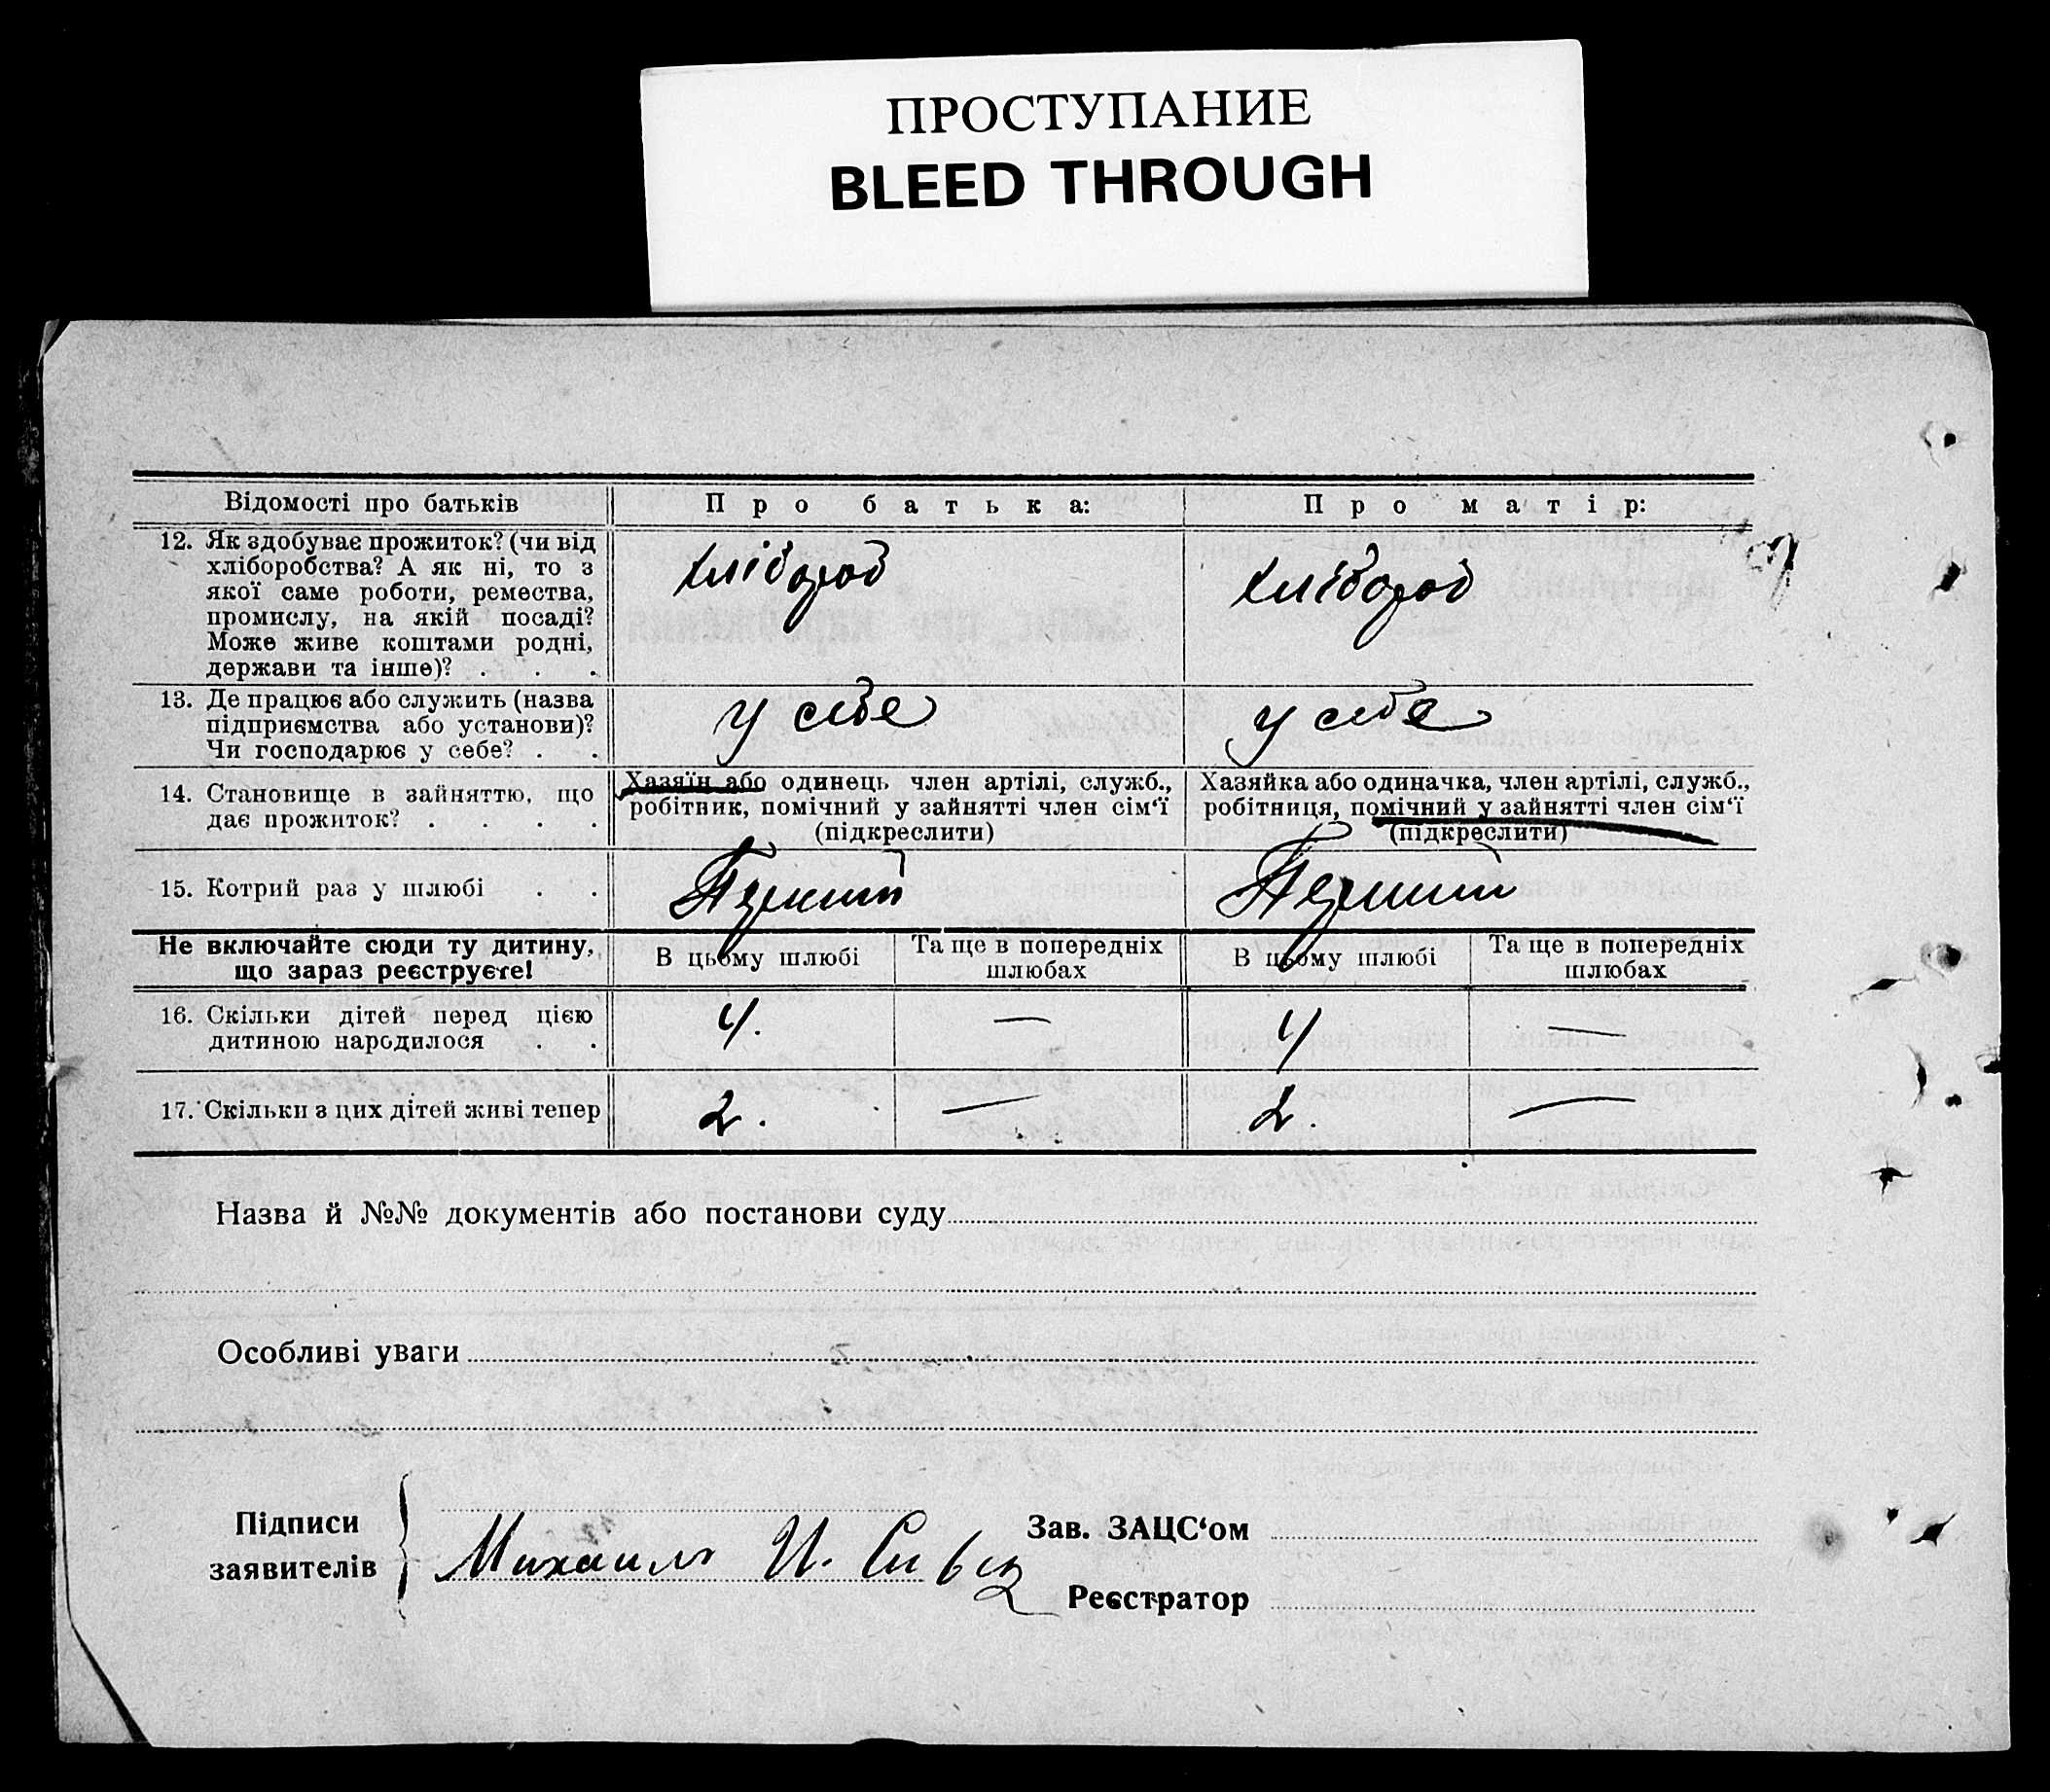 ПРОСТУПАНИЕ
BLEED THROUGH
Відомості про батьків
Про батька:
Про матір:
12. Як здобуває прожиток? (чи від
хліборобства? А як ні, то з
якої саме роботи, ремества,
промислу, на якій посаді?
Може живе коштами родні,
держави та інше)? . . .
хлібороб
хлібороб
13. Де працює або служить (назва
підприємства або установи)?
Чи господарює у себе? . .
у себе
у себе
14. Становище в зайняттю, що
дає прожиток? . . . .
Хазяїн або одинець член артілі, служб.,
робітник, помічний у зайнятті член сім‘ї
(підкреслити)
Хазяйка або одиначка, член артілі, служб.,
робітниця, помічний у зайнятті член сім‘ї
(підкреслити)
15. Котрий раз у шлюбі . .
Перший
Перший
Не включайте сюди ту дитину,
що зараз реєструєте!
В цьому шлюбі
Та ще в попередніх
шлюбах
В цьому шлюбі
Та ще в попередніх
шлюбах
16. Скільки дітей перед цією
дитиною народилося . .
4.
—
4
—
17. Скільки з цих дітей живі тепер
2.
—
2.
—
Назва й №№ документів або постанови суду
Особливі уваги
Підписи
заявителів
Михаил И.
Зав. ЗАЦС‘ом
Реєстратор